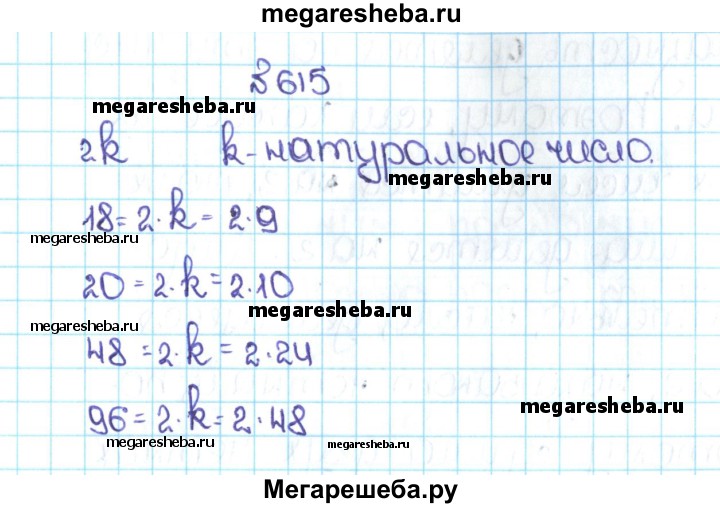 megaresheba.ru
№ 615
megaresheba.ru
2k k - натуральное число.
megaresheba.ru
18 = 2·k = 2·9
megaresheba.ru
20 = 2·k = 2·10
megaresheba.ru
megaresheba.ru
48 = 2·k = 2·24
megaresheba.ru
96 = 2·k = 2·48
megaresheba.ru
megaresheba.ru
Мегарешеба.ру